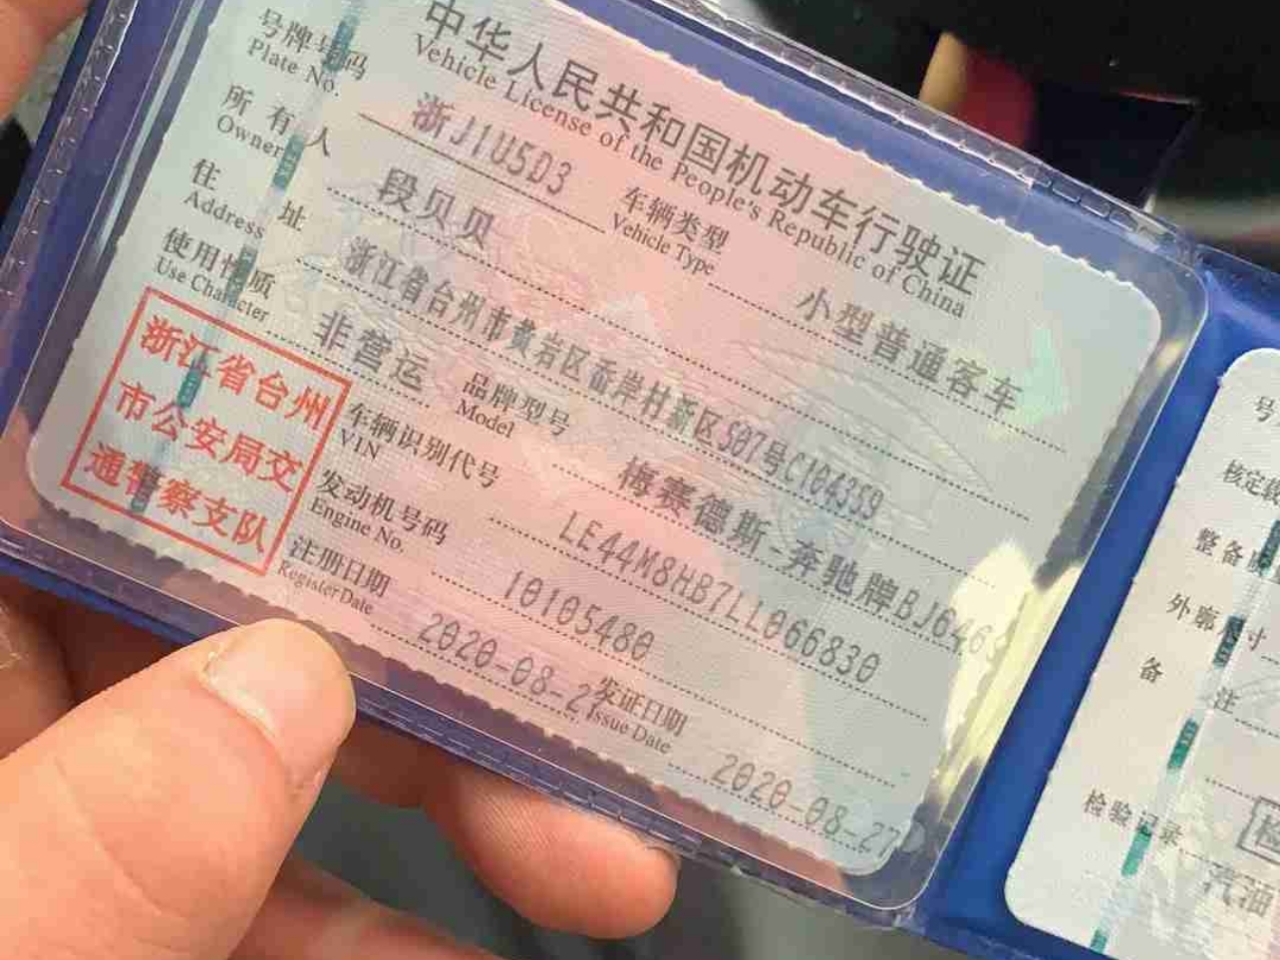 中华人民共和国机动车行驶证
Vehicle License of the People's Republic of China
号牌号码 浙J1U5D3 车辆类型 小型普通客车
Plate No. Vehicle Type
所有人 段贝贝
Owner
住址 浙江省台州市黄岩区岙岸村新区S07号C1043S9
Address
使用性质 非营运 品牌型号 梅赛德斯-奔驰牌BJ646
Use Character Model
车辆识别代号 LE44M8HB7LL066830
VIN
发动机号码 10105480
Engine No.
注册日期 2020-08-27 发证日期 2020-08-27
Register Date Issue Date
浙江省台州
市公安局交
通警察支队
号
核定载
整备
外廓尺寸
备注
检验记录
检
汽油